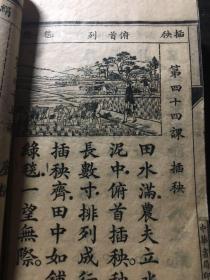 插秧 俯首 列 毯
第四十四課 插秧
田水滿農夫立水
泥中俯首插秧秧
長數寸排列成行
插秧齊田中如鋪
綠毯一望無際
中華書局